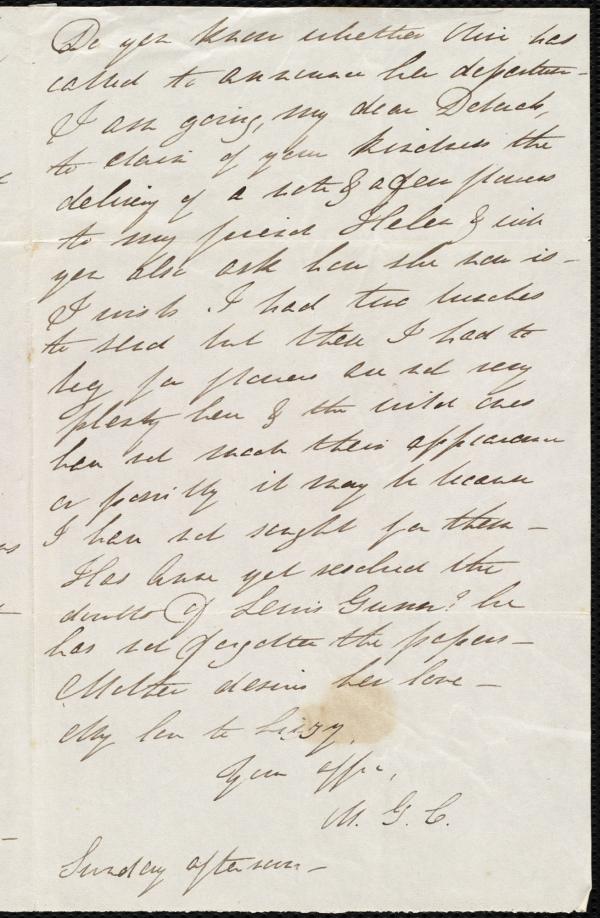 Do you know whether Olive has
called to announce her departure -
I am going, my dear Deborah,
to claim of your kindness the
delivery of a note & a few flowers
to my friend Helen & will
you also ask how she now is -
I wish I had two bunches
to send but these I had to
beg for flowers are not very
plenty here & the wild ones
have not made their appearance
or possibly it may be because
I have not sought for them -
Has Anne yet resolved the
doubts of Lewis Gunn? he
has not forgotten the papers -
Mother desires her love -
My love to Lizzy.
Your affte.
M. G. C.
Sunday afternoon -